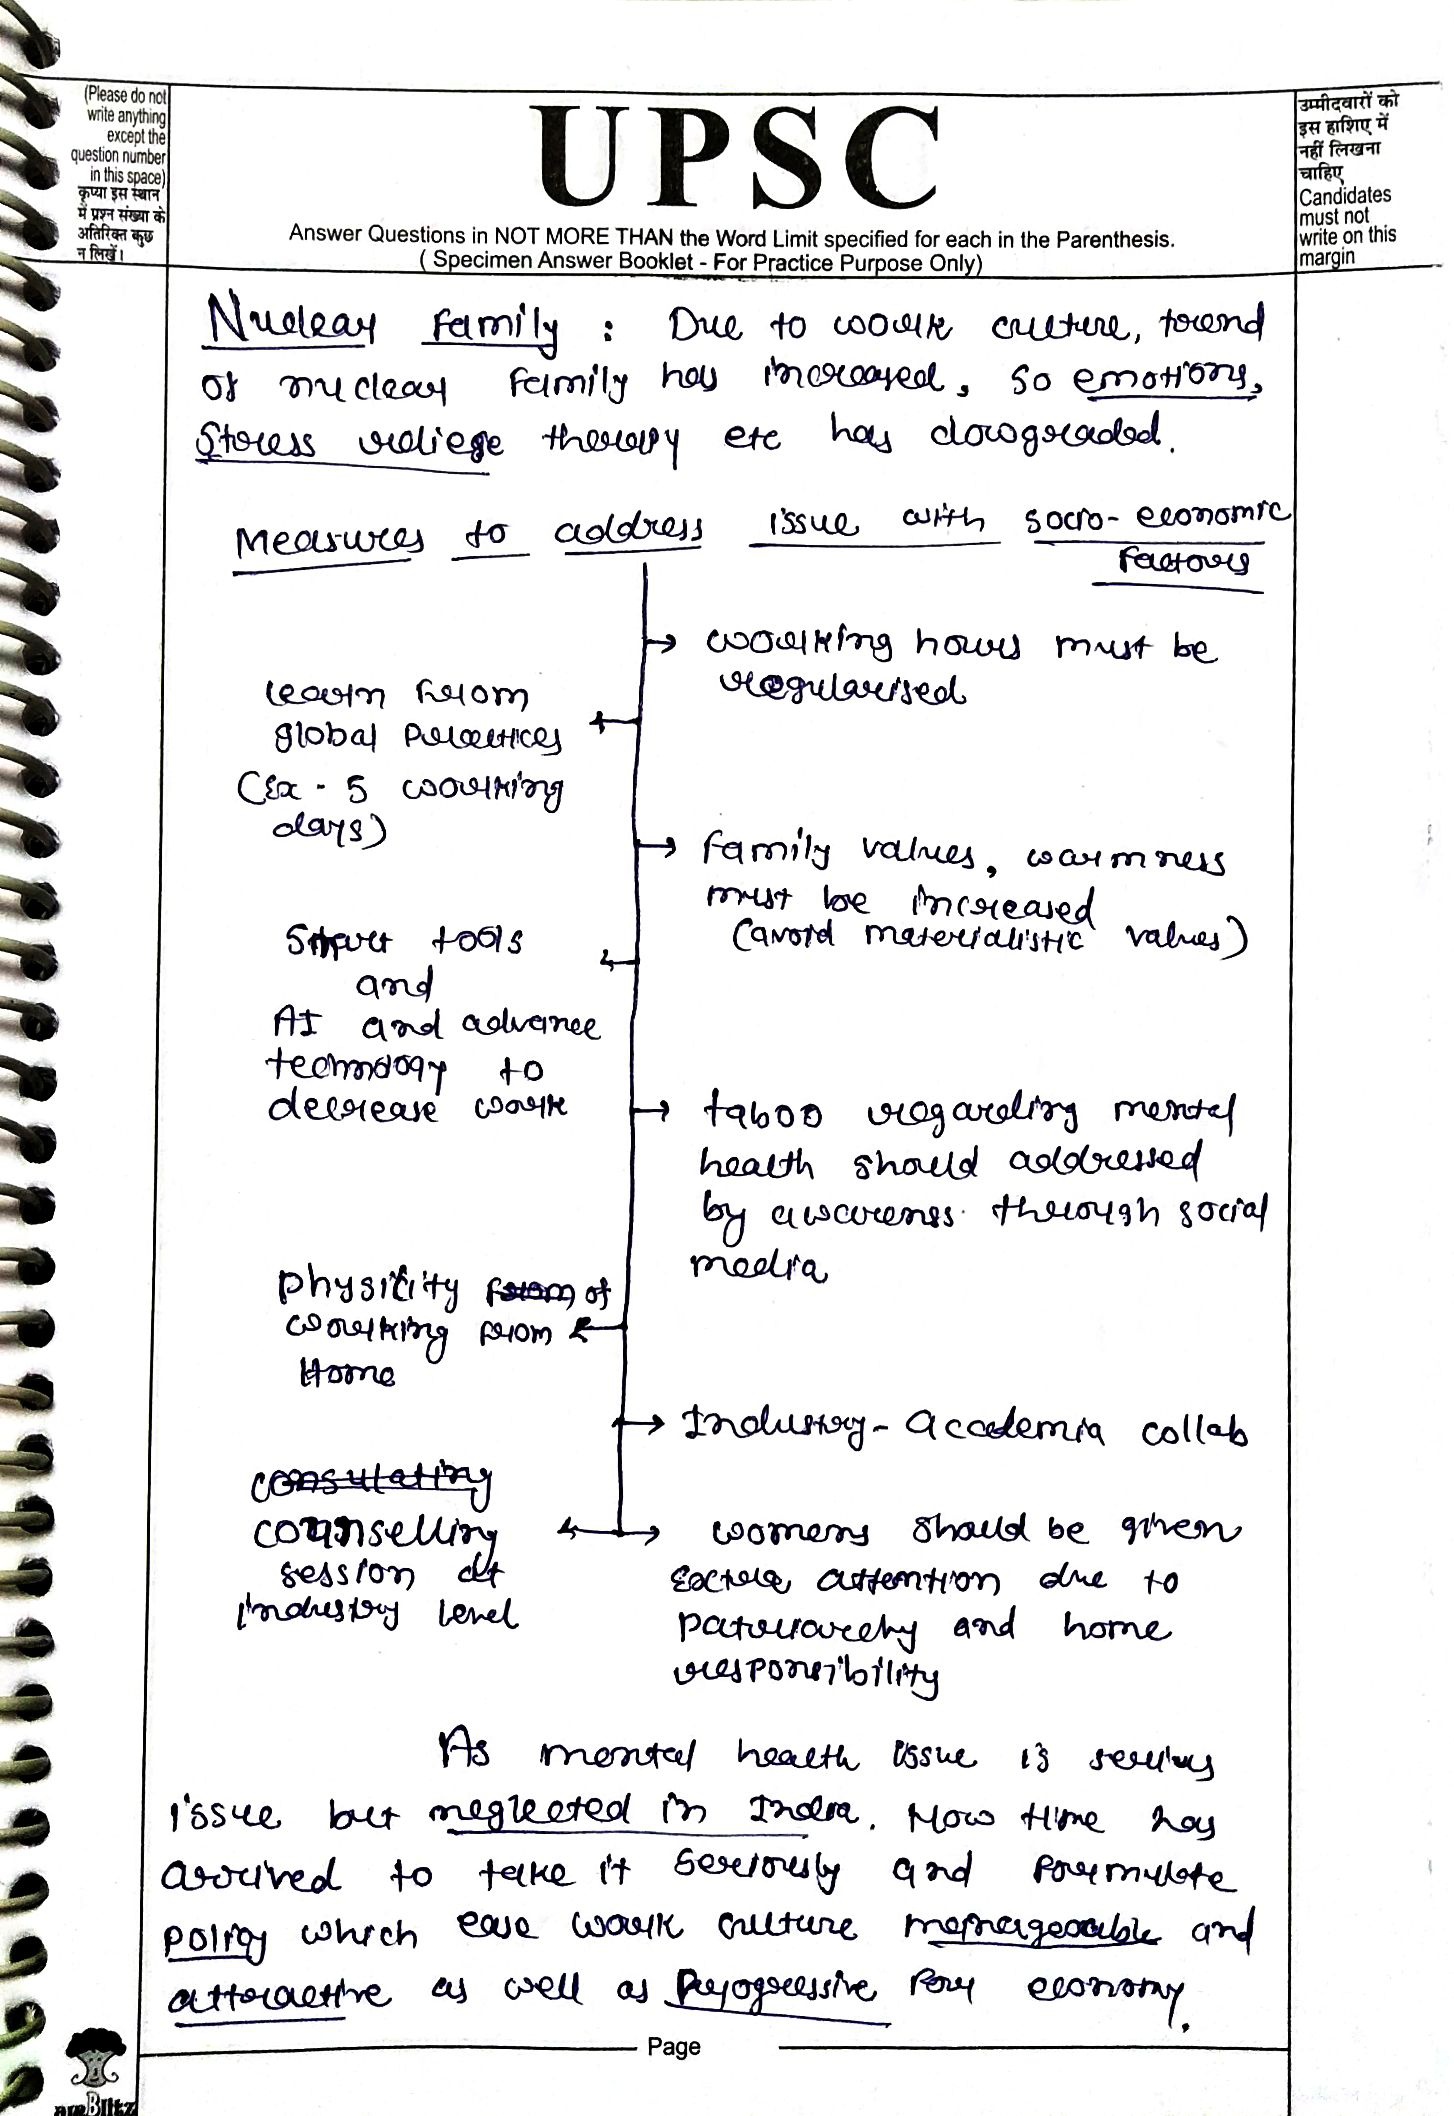 (Please do not
write anything
except the
question number
in this space)
कृप्या इस स्थान
में प्रश्न संख्या के
अतिरिक्त कुछ
न लिखें।
UPSC
Answer Questions in NOT MORE THAN the Word Limit specified for each in the Parenthesis.
( Specimen Answer Booklet - For Practice Purpose Only)
उम्मीदवारों को
इस हाशिए में
नहीं लिखना
चाहिए
Candidates
must not
write on this
margin
Nuclear family : Due to work culture, trend
of nuclear family has increased, so emotions,
stress reliege therapy etc has dowgraded.
Measures to address issue with socio-economic
factors
→ working hours must be
regularised
learn from
global practices
(Ex - 5 working
days)
→ family values, warmness
must be increased
(avoid materialistic values)
Smart tools
and
AI and advance
technology to
decrease work
→ taboo regarding mental
health should addressed
by awareness through social
media
physicity from of
working from
Home
→ Industry - academia collab
consulating
counselling
session at
industry level
→ womens should be given
extra attention due to
patriarchy and home
responsibility
As mental health issue is serius
issue but neglected in India. Now time has
arrived to take it seriously and formulate
policy which ease work culture manageable and
attractive as well as progressive for economy.
Page